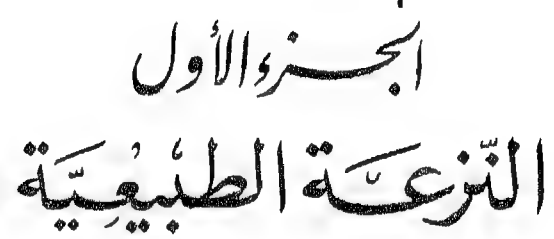 الجزء الأول
النّزعَة الطبيعيَّة